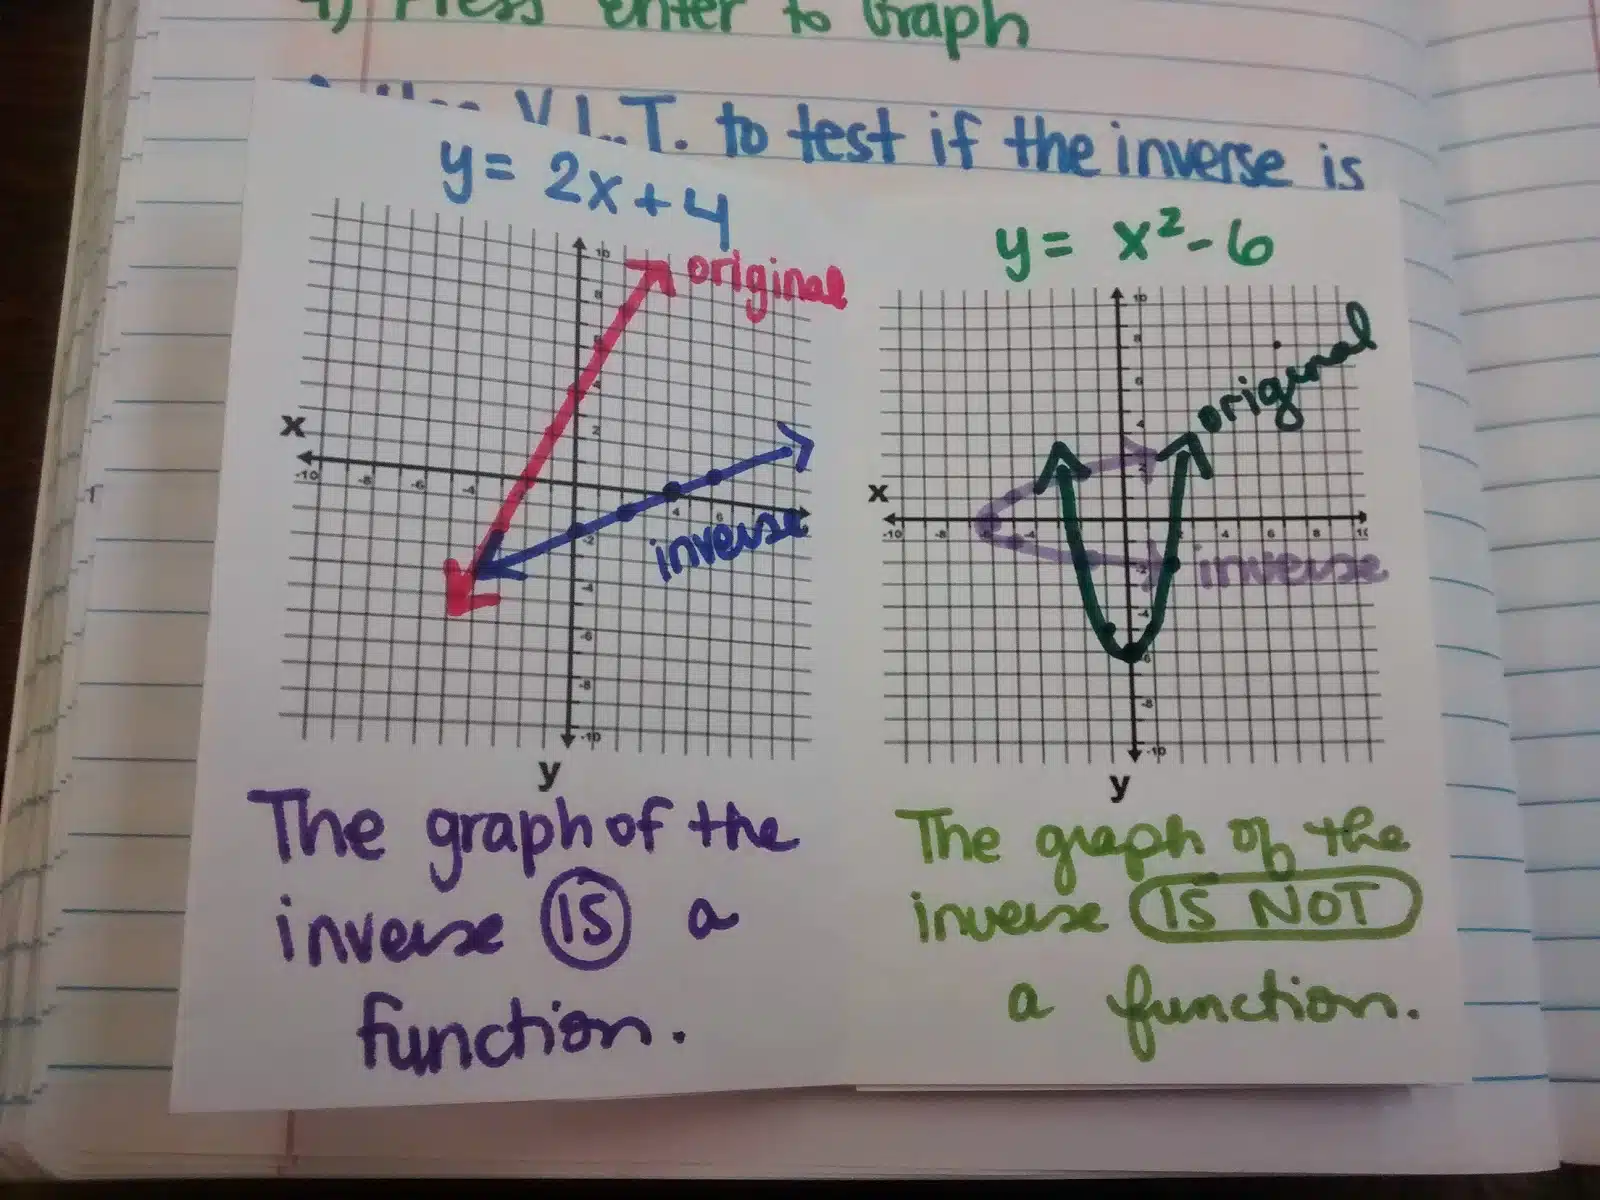 4) Press enter to Graph
V.L.T. to test if the inverse is
y = 2x + 4
original
x
-10 -8 -6 -4 4 6
10 8 6 4 2 -2 -4 -6 -8 -10
inverse
y
The graph of the
inverse IS a
function.
y = x²-6
original
x
-10 -8 -6 -4 4 6 8 10
10 8 6 4 2 -2 -4 -6 -8 -10
inverse
y
The graph of the
inverse IS NOT
a function.